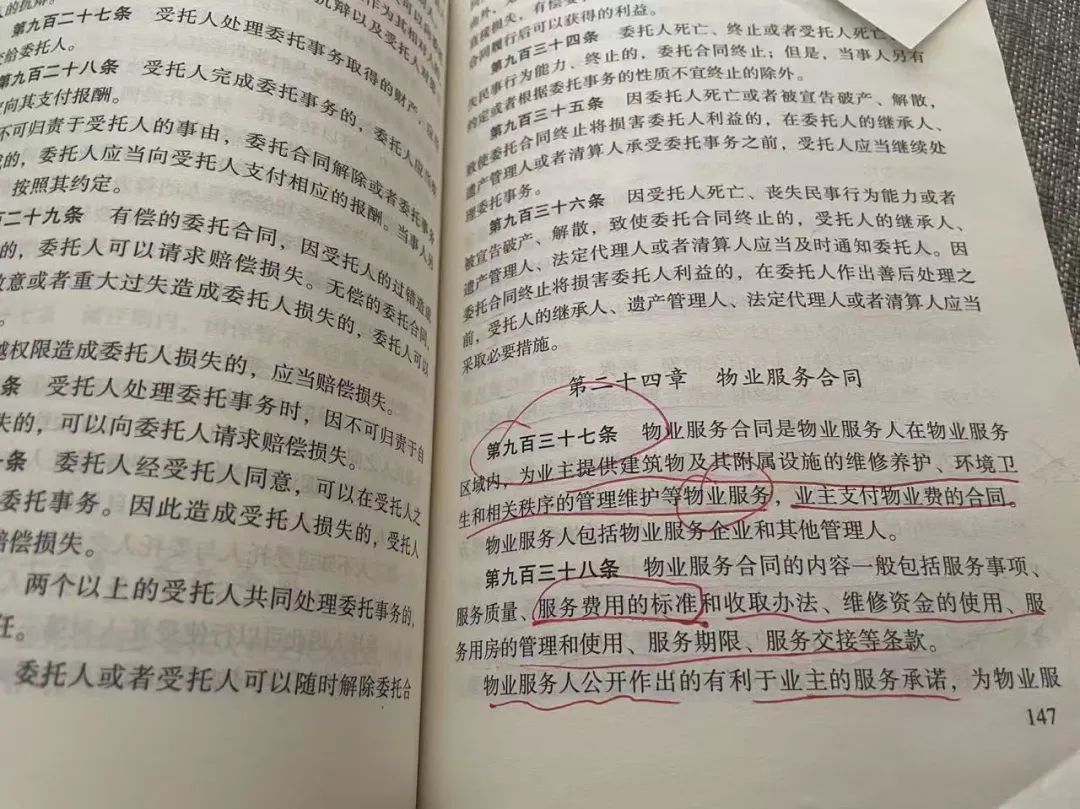 第九百二十七条 受托人处理委托事务取得的财产,
交给委托人。
第九百二十八条 受托人完成委托事务的,委托人应当
向其支付报酬。
不可归责于受托人的事由,委托合同解除或者委托事务
的,委托人应当向受托人支付相应的报酬。当事人
按照其约定。
百二十九条 有偿的委托合同,因受托人的过错造成
的,委托人可以请求赔偿损失。无偿的委托合同,
故意或者重大过失造成委托人损失的,委托人可以
越权限造成委托人损失的,应当赔偿损失。
条 受托人处理委托事务时,因不可归责于自
失的,可以向委托人请求赔偿损失。
条 委托人经受托人同意,可以在受托人之
委托事务。因此造成受托人损失的,受托人
赔偿损失。
两个以上的受托人共同处理委托事务的,
任。
委托人或者受托人可以随时解除委托合
合同履行后可以获得的利益。
第九百三十四条 委托人死亡、终止或者受托人死亡、
失民事行为能力、终止的,委托合同终止;但是,当事人另有
约定或者根据委托事务的性质不宜终止的除外。
第九百三十五条 因委托人死亡或者被宣告破产、解散,
致使委托合同终止将损害委托人利益的,在委托人的继承人、
遗产管理人或者清算人承受委托事务之前,受托人应当继续处
理委托事务。
第九百三十六条 因受托人死亡、丧失民事行为能力或者
被宣告破产、解散,致使委托合同终止的,受托人的继承人、
遗产管理人、法定代理人或者清算人应当及时通知委托人。因
委托合同终止将损害委托人利益的,在委托人作出善后处理之
前,受托人的继承人、遗产管理人、法定代理人或者清算人应当
采取必要措施。
第二十四章 物业服务合同
第九百三十七条 物业服务合同是物业服务人在物业服务
区域内,为业主提供建筑物及其附属设施的维修养护、环境卫
生和相关秩序的管理维护等物业服务,业主支付物业费的合同。
物业服务人包括物业服务企业和其他管理人。
第九百三十八条 物业服务合同的内容一般包括服务事项、
服务质量、服务费用的标准和收取办法、维修资金的使用、服
务用房的管理和使用、服务期限、服务交接等条款。
物业服务人公开作出的有利于业主的服务承诺,为物业服
147